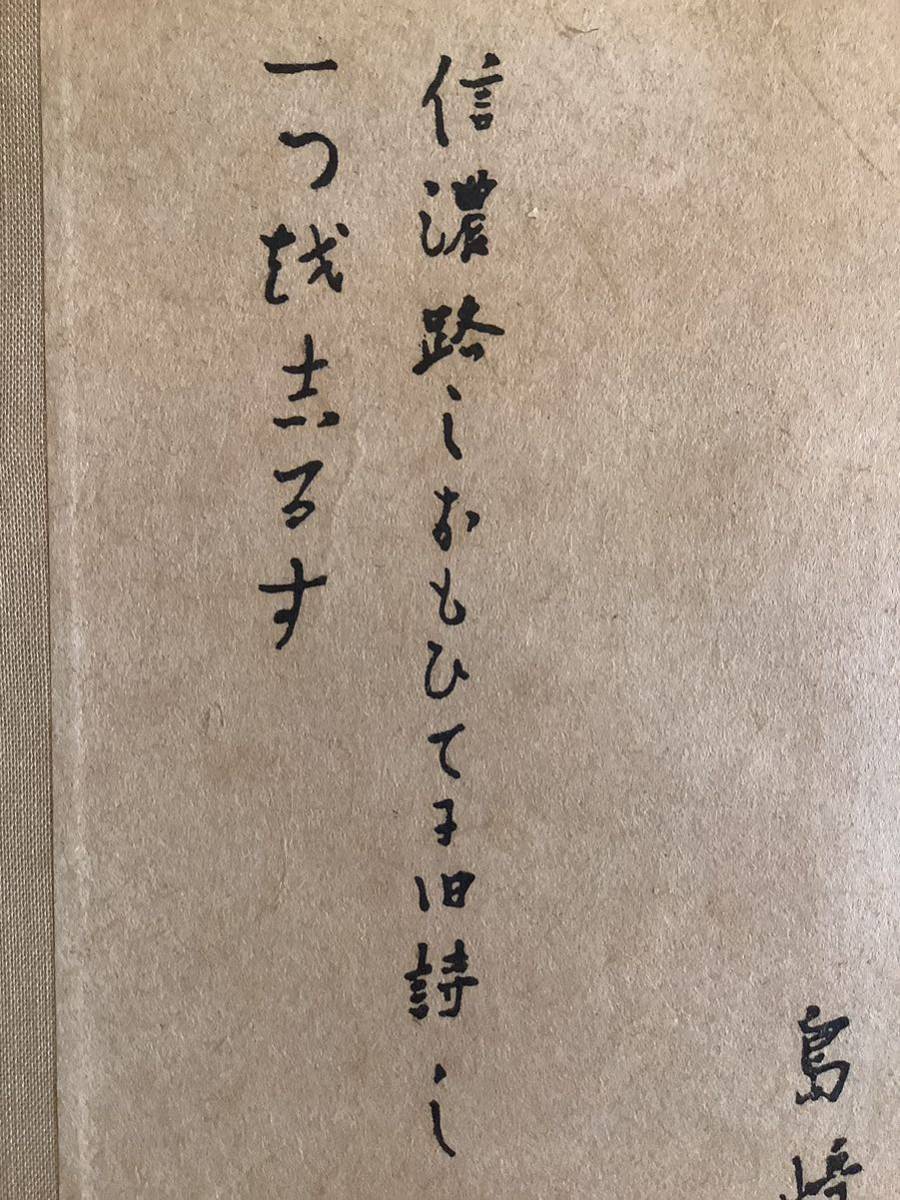 島崎
信濃路之おもひてに旧詩之
一つ越志るす